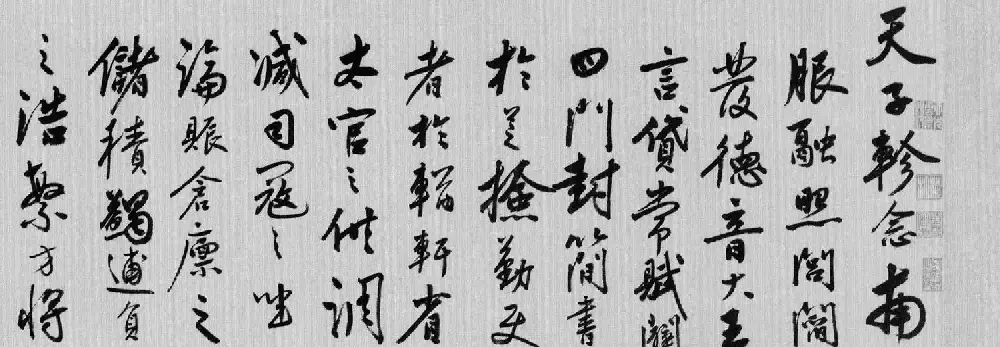 天子軫念南
服融照閭閻
發德音大王
言貸常賦闢
四門封簡書
於芝撿勤使
者於輶軒省
太官之供調
減司寇之
論賑倉廩之
儲積蠲逋負
之浩繁方將